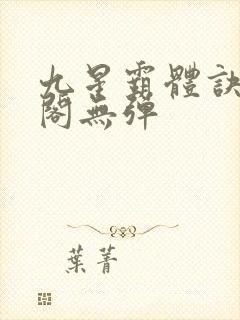 九星霸體訣
閣無彈
葉菁